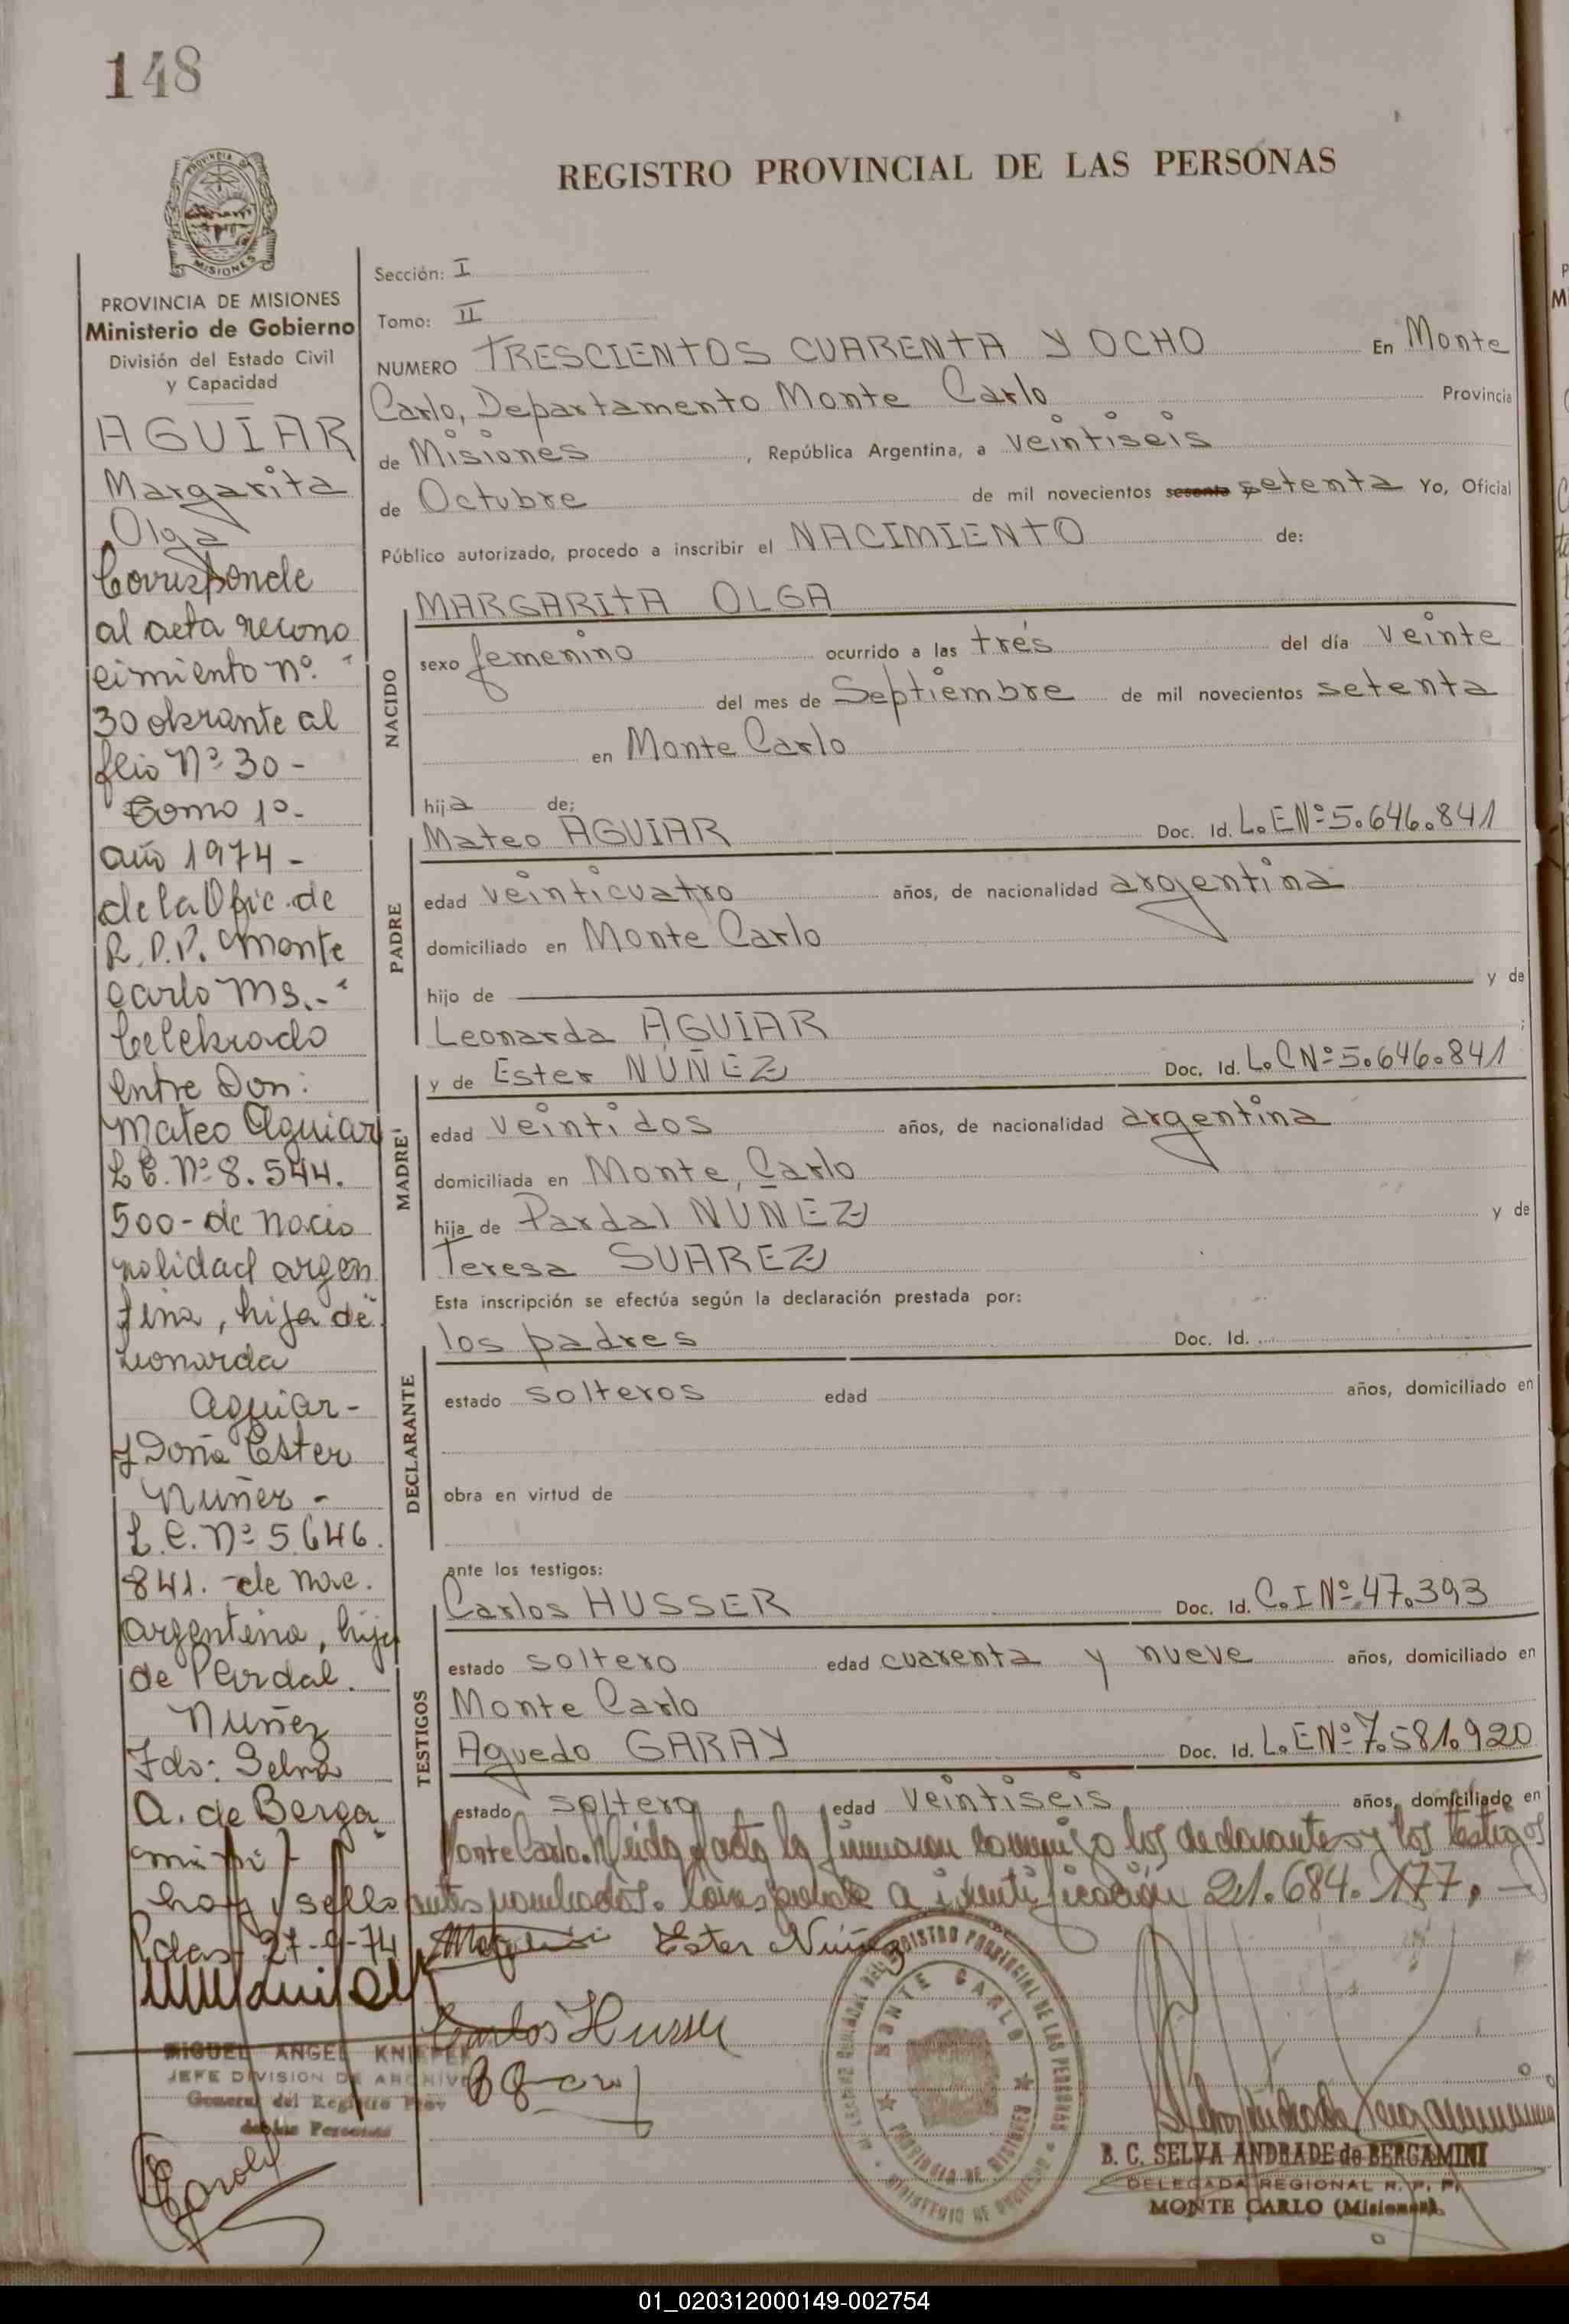 148
PROVINCIA DE MISIONES
REGISTRO PROVINCIAL DE LAS PERSONAS
PROVINCIA DE MISIONES
Ministerio de Gobierno
División del Estado Civil
y Capacidad
AGUIAR
Margarita
Olga
Corresponde
al acta recono
cimiento nº
30 obrante al
flio Nº 30 -
Tomo 1º -
año 1974 -
de la Ofic. de
R.P.P. Monte
Carlo Ms.-
Celebrado
entre Don:
Mateo Aguiar
L E. Nº 8.544.
500 - de nacio
nalidad argen
tina, hijo de
Leonarda
Aguiar -
y Doña Ester
Nuñez -
L.C. Nº 5.646.
841. - de nac.
argentina, hija
de Pardal.
Nuñez
Fdo: Selva
A. de Berga
mini
hay sello
Pdas 27-9-74
MIGUEL ANGEL KNIPPEL
JEFE DIVISION DE ARCHIVO
General del Registro Prov
de las Personas
Sección: I
Tomo: II
NUMERO TRESCIENTOS CUARENTA Y OCHO En Monte
Carlo, Departamento Monte Carlo Provincia
de Misiones, República Argentina, a veintiseis
de Octubre de mil novecientos sesenta setenta Yo, Oficial
Público autorizado, procedo a inscribir el NACIMIENTO de:
NACIDO
MARGARITA OLGA
sexo femenino ocurrido a las trés del día veinte
del mes de Septiembre de mil novecientos setenta
en Monte Carlo
hija de;
PADRE
Mateo AGUIAR Doc. Id. L.E Nº 5.646.841
edad veinticuatro años, de nacionalidad argentina
domiciliado en Monte Carlo
hijo de y de
Leonarda AGUIAR ;
MADRE
y de Ester NUÑEZ Doc. Id. L.C Nº 5.646.841
edad veintidos años, de nacionalidad argentina
domiciliada en Monte Carlo
hija de Pardal NUÑEZ y de
Teresa SUAREZ
Esta inscripción se efectúa según la declaración prestada por:
DECLARANTE
los padres Doc. Id.
estado solteros edad años, domiciliado en
obra en virtud de
ante los testigos:
TESTIGOS
Carlos HUSSER Doc. Id. C.I Nº 47.393
estado soltero edad cuarenta y nueve años, domiciliado en
Monte Carlo
Aguedo GARAY Doc. Id. L.E Nº 7.581.920
estado soltero edad veintiseis años, domiciliado en
Monte Carlo. Leida el acta la firmaron conmigo los declarantes y los testigos
antes nombrados. Corresponde a identificación 21.684.177.
Ester Nuñez
Carlos Husser
MONTE CARLO
PROVINCIA DE MISIONES
B. C. SELVA ANDRADE de BERGAMINI
DELEGADA REGIONAL R. P. P.
MONTE CARLO (Misiones)
01_020312000149-002754